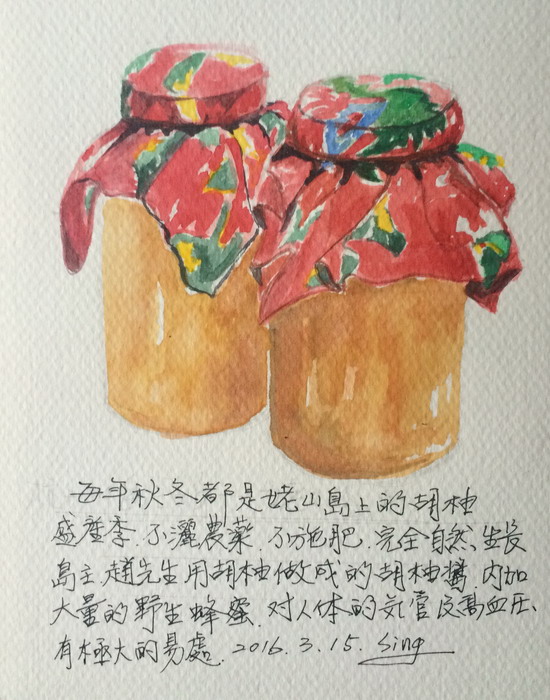 每年秋冬都是姥山島上的胡柚
盛產季.不灑農藥.不施肥.完全自然生長
島主趙先生用胡柚做成的胡柚醬,內加
大量的野生蜂蜜.對人体的气管及高血压、
有極大的易處.2016.3.15.Sing